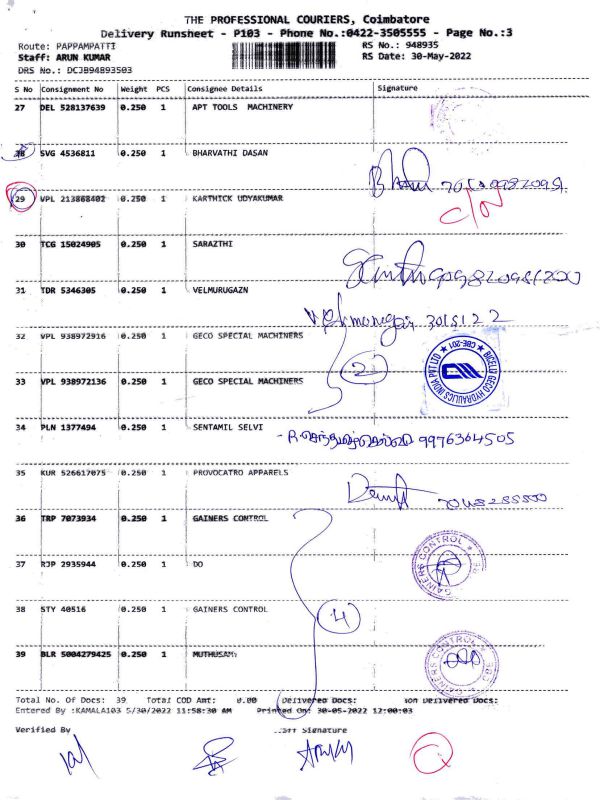 THE PROFESSIONAL COURIERS, Coimbatore
Delivery Runsheet - P103 - Phone No.:0422-3505555 - Page No.:3
Route: PAPPAMPATTI RS No.: 948935
Staff: ARUN KUMAR RS Date: 30-May-2022
DRS No.: DCJB94893503
S No Consignment No Weight PCS Consignee Details Signature
27 DEL 528137639 0.250 1 APT TOOLS MACHINERY
28 SVG 4536811 0.250 1 BHARVATHI DASAN
29 VPL 213868402 0.250 1 KARTHICK UDYAKUMAR C/N
30 TCG 15024905 0.250 1 SARAZTHI
31 TDR 5346305 0.250 1 VELMURUGAZN
32 VPL 938972916 0.250 1 GECO SPECIAL MACHINERS
2
BICELLI GECO HYDRAULICS INDIA PVT LTD ★ CBE-201 ★
33 VPL 938972136 0.250 1 GECO SPECIAL MACHINERS
34 PLN 1377494 0.250 1 SENTAMIL SELVI
9976304505
35 KUR 526617075 0.250 1 PROVOCATRO APPARELS
36 TRP 7073934 0.250 1 GAINERS CONTROL
GAINERS CONTROL ★ CBE
37 RJP 2935944 0.250 1 DO
38 STY 40516 0.250 1 GAINERS CONTROL
4
39 BLR 5004279425 0.250 1 MUTHUSAM
GAINERS CONTROL ★ CBE
Total No. Of Docs: 39 Total COD Amt: 0.00 Delivered Docs: Non Delivered Docs:
Entered By :KAMALA103 5/30/2022 11:58:30 AM Printed On: 30-05-2022 12:00:03
Verified By Signature